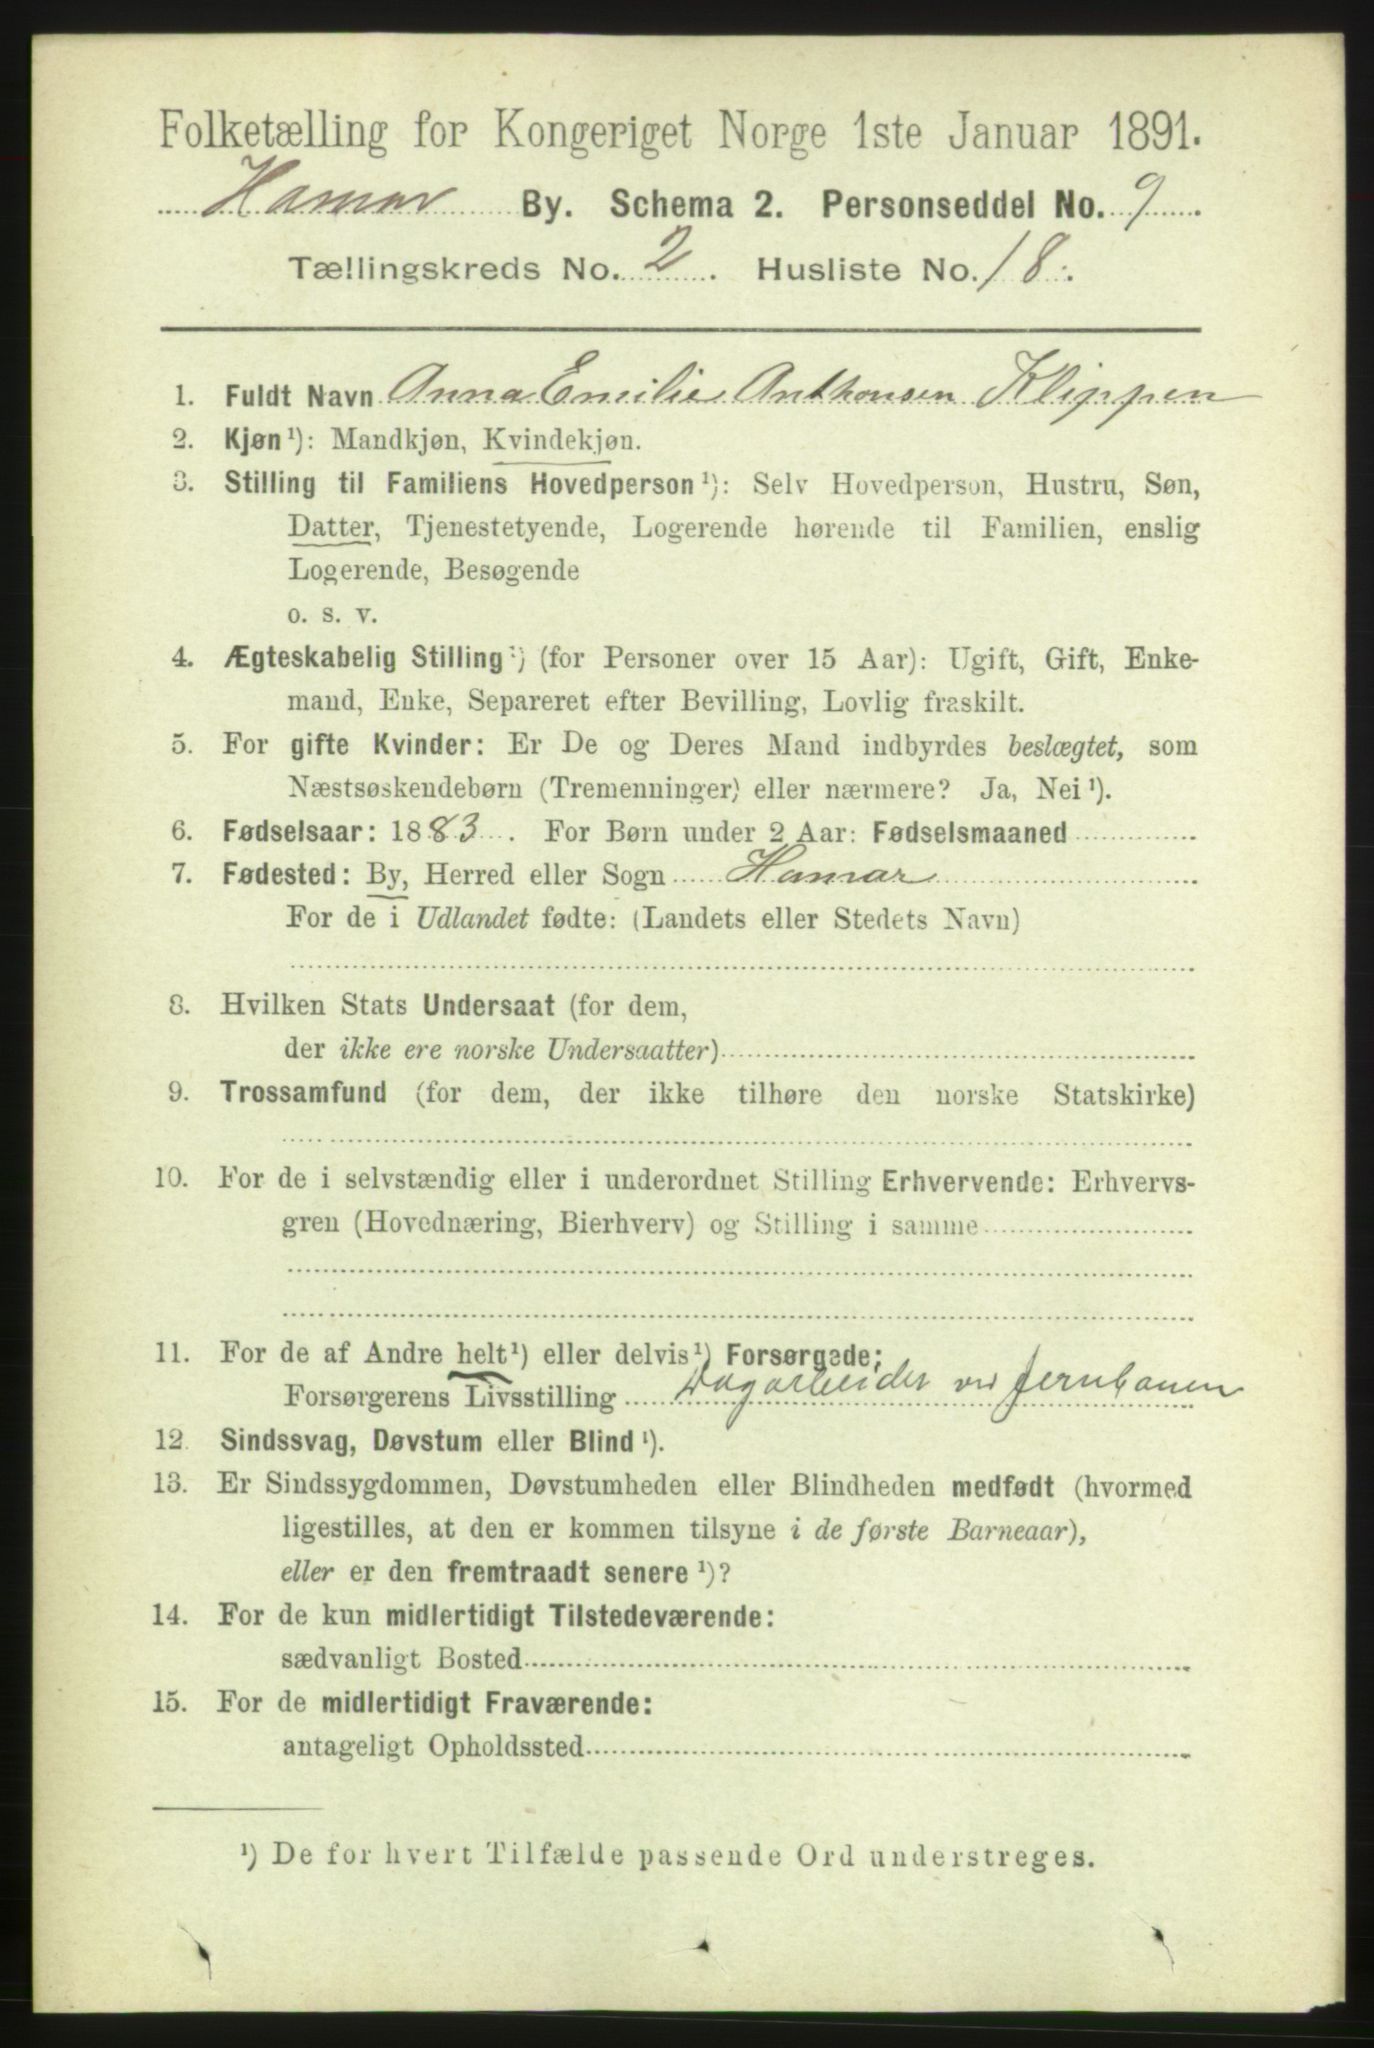 Folketælling for Kongeriget Norge 1ste Januar 1891.
Hamar By. Schema 2. Personseddel No. 9
Tællingskreds No. 2. Husliste No. 18.
1. Fuldt Navn Anna Emilie Anthonsen Klippen
2. Kjøn¹): Mandkjøn, Kvindekjøn.
3. Stilling til Familiens Hovedperson¹): Selv Hovedperson, Hustru, Søn,
Datter, Tjenestetyende, Logerende hørende til Familien, enslig
Logerende, Besøgende
o. s. v.
4. Ægteskabelig Stilling¹) (for Personer over 15 Aar): Ugift, Gift, Enke-
mand, Enke, Separeret efter Bevilling, Lovlig fraskilt.
5. For gifte Kvinder: Er De og Deres Mand indbyrdes beslægtet, som
Næstsøskendebørn (Tremenninger) eller nærmere? Ja, Nei¹).
6. Fødselsaar: 1883. For Børn under 2 Aar: Fødselsmaaned
7. Fødested: By, Herred eller Sogn Hamar
For de i Udlandet fødte: (Landets eller Stedets Navn)
8. Hvilken Stats Undersaat (for dem,
der ikke ere norske Undersaatter)
9. Trossamfund (for dem, der ikke tilhøre den norske Statskirke)
10. For de i selvstændig eller i underordnet Stilling Erhvervende: Erhvervs-
gren (Hovednæring, Bierhverv) og Stilling i samme
11. For de af Andre helt¹) eller delvis¹) Forsørgede;
Forsørgerens Livsstilling Dagarbeider ved Jernbanen
12. Sindssvag, Døvstum eller Blind¹).
13. Er Sindssygdommen, Døvstumheden eller Blindheden medfødt (hvormed
ligestilles, at den er kommen tilsyne i de første Barneaar),
eller er den fremtraadt senere¹)?
14. For de kun midlertidigt Tilstedeværende:
sædvanligt Bosted
15. For de midlertidigt Fraværende:
antageligt Opholdssted
¹) De for hvert Tilfælde passende Ord understreges.